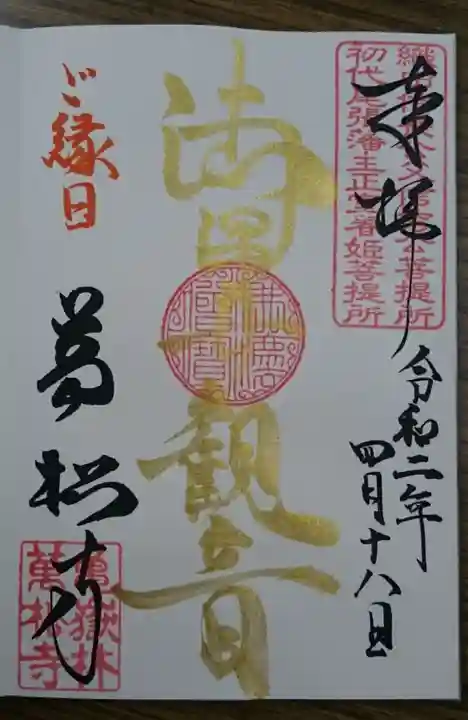 奉拝
織田信長公父信秀公菩提所
初代尾張藩主正室春姫菩提所
令和二年
四月十八日
観音
ご縁日
萬松寺
亀嶽林
萬松寺